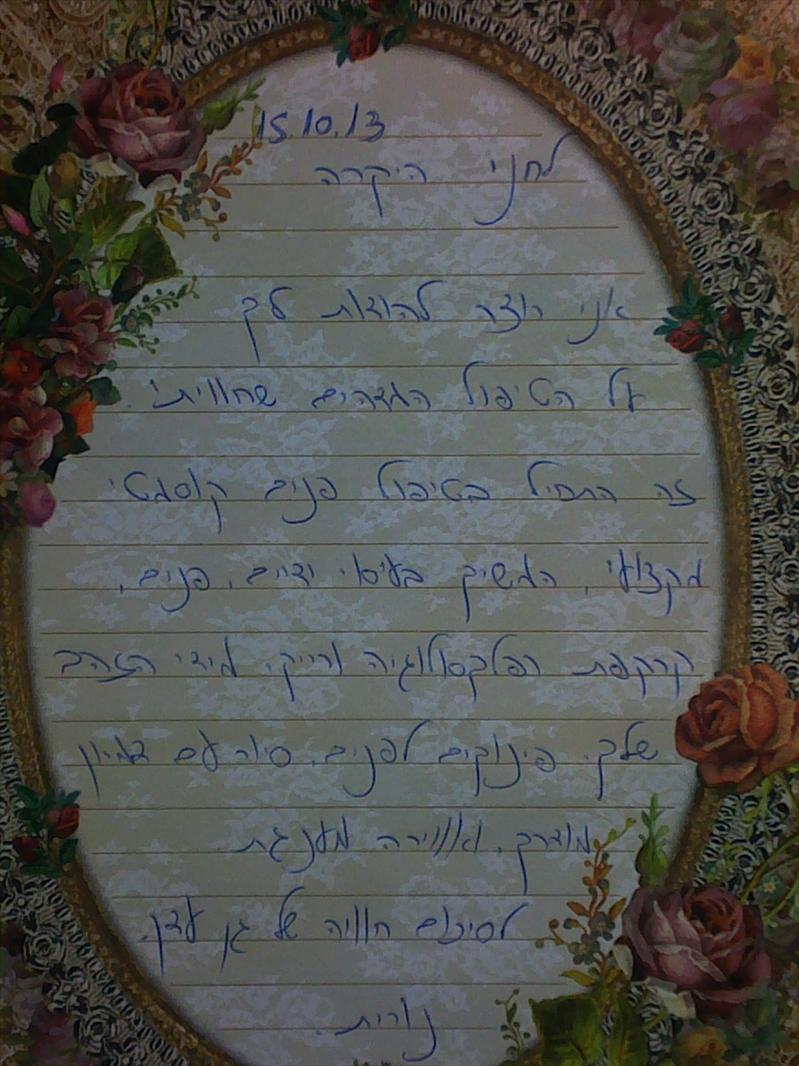 15.10.13
לחני היקרה
אני רוצה להודות לך
על הטיפול המדהים שחוויתי
זה התחיל בטיפול פנים קוסמטי
מקצועי, המשיך בעיסוי ידיים, פנים,
קרקפת רפלקסולוגיה ורייקי מידי הזהב
שלך. פינוקים לפנים, סיור עם דמיון
מודרך, ואווירה מענגת
לסיכום חוויה של גן עדן.
נורית.